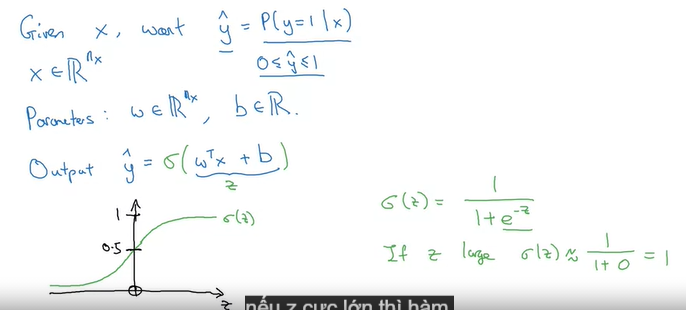 Given x, want ŷ = P(y=1|x)
x ∈ ℝⁿˣ
0 ≤ ŷ ≤ 1
Parameters: w ∈ ℝⁿˣ, b ∈ ℝ.
Output ŷ = σ(wᵀx + b)
z
1
σ(z)
0.5
z
σ(z) = 1 / (1 + e^(-z))
If z large σ(z) ≈ 1 / (1 + 0) = 1
nếu z cực lớn thì hàm